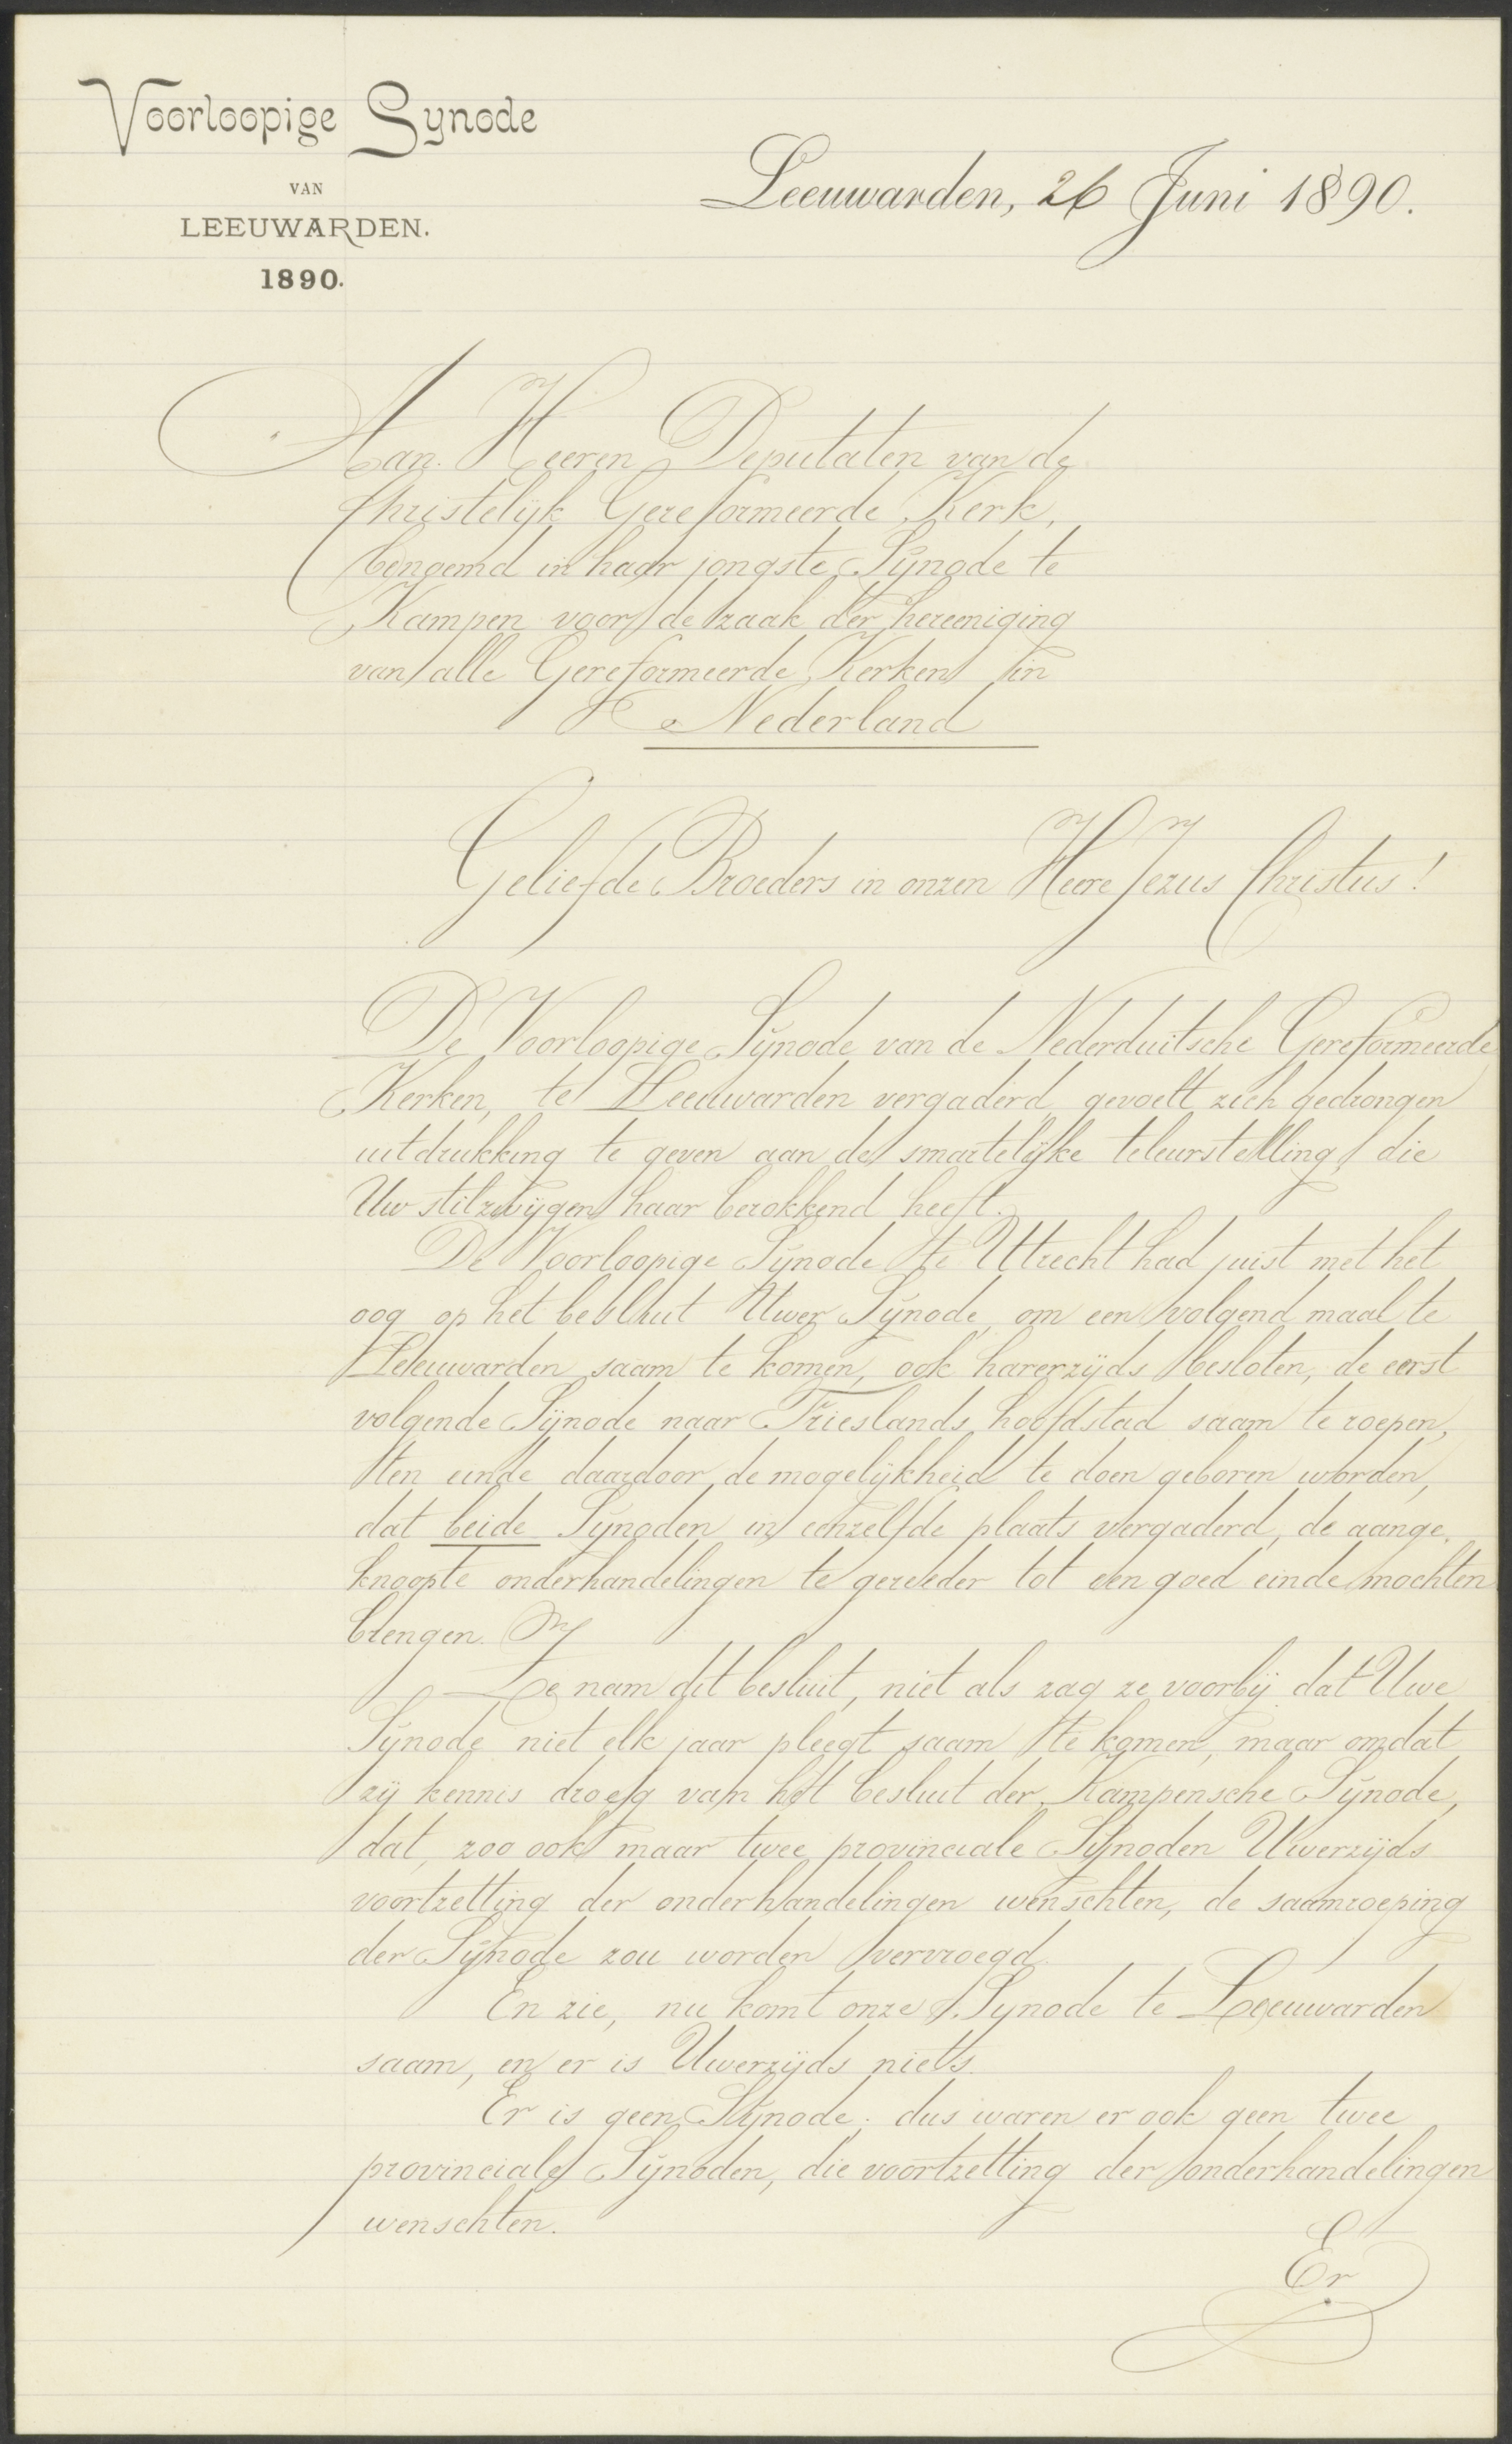 Voorloopige Synode
VAN
LEEUWARDEN.
1890.
Leeuwarden, 26 Juni 1890.
Aan Heeren Deputaten van de
Christelijk Gereformeerde Kerk,
benoemd in haar jongste Synode te
Kampen voor de zaak der hereeniging
van alle Gereformeerde Kerken in
Nederland
Geliefde Broeders in onzen Heere Jezus Christus!
De Voorloopige Synode van de Nederduitsche Gereformeerde
Kerken, te Leeuwarden vergaderd, gevoelt zich gedrongen
uitdrukking te geven aan de smartelijke teleurstelling, die
Uw stilzwijgen haar berokkend heeft.
De Voorloopige Synode te Utrecht had juist met het
oog op het besluit Uwer Synode, om een volgend maal te
Leeuwarden saam te komen, ook harerzijds besloten, de eerst
volgende Synode naar Frieslands hoofdstad saam te roepen,
ten einde daardoor de mogelijkheid te doen geboren worden,
dat beide Synoden in eenzelfde plaats vergaderd, de aange-
knoopte onderhandelingen te gereeder tot een goed einde mochten
brengen.
Ze nam dit besluit, niet als zag ze voorbij dat Uwe
Synode niet elk jaar pleegt saam te komen, maar omdat
zij kennis droeg van het besluit der Kampensche Synode,
dat, zoo ook maar twee provinciale Synoden Uwerzijds
voortzetting der onderhandelingen wenschten, de saamroeping
der Synode zou worden vervroegd.
En zie, nu komt onze Synode te Leeuwarden
saam, en er is Uwerzijds niets.
Er is geen Synode; dus waren er ook geen twee
provinciale Synoden, die voortzetting der onderhandelingen
wenschten.
Er